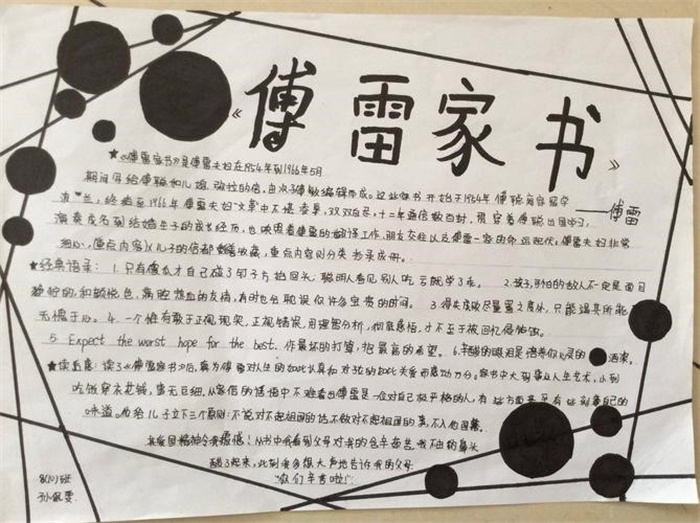 《傅雷家书》
——傅雷
★《傅雷家书》是傅雷夫妇在1954年到1966年5月
期间写给傅聪和儿媳弥拉的信,由次子傅敏编辑而成。这些家书开始于1954年傅聪离家留学
波兰,终结至1966年傅雷夫妇"文革"中不堪凌辱,双双自尽,十二年通信数百封,贯穿着傅聪出国学习,
演奏成名到结婚生子的成长经历,也映照着傅雷的翻译工作,朋友交往以及傅雷一家的命运起伏,傅雷夫妇非常
细心,重点内容
儿子的信都收藏,重点内容则分类抄录成册。
★经典语录:1.只有傻瓜才自己碰了钉子方始回头,聪明人看见别人吃亏就学了乖。 2.孩子,可怕的敌人不一定是面目
狰狞的,和颜悦色,一腔热血的友情,有时也会耽误你许多宝贵的时间。 3.得失成败尽量置之度外,只能竭尽所能
无愧于心。4.一个人惟有敢于正视现实,正视错误,用理智分析,彻底感悟,才不至于被回忆侵蚀。
5 Expect the worst hope for the best. 作最坏的打算,抱最高的希望。6.辛酸的眼泪是培养你心灵的酒浆。
★读后感:读了《傅雷家书》后,我为傅雷对人生的如此认真和对孩的如此关爱而感动万分。家书中大到事业人生艺术,小到
吃饭穿衣花钱,事无巨细。从家信的话语中不难看出傅雷是一位对己极严格的人,有些
自己的
味道。他给儿子立下三个原则:不说对不起祖国的话,不做对不起祖国的事,不入他国籍。
爱国精神令我震感!从书中我看到父母对我的含辛茹苦,我不由的鼻头
酸了起来,此刻我多想大声地告诉我的父母
"你们辛苦啦!"
8(10)班
孙佩雯